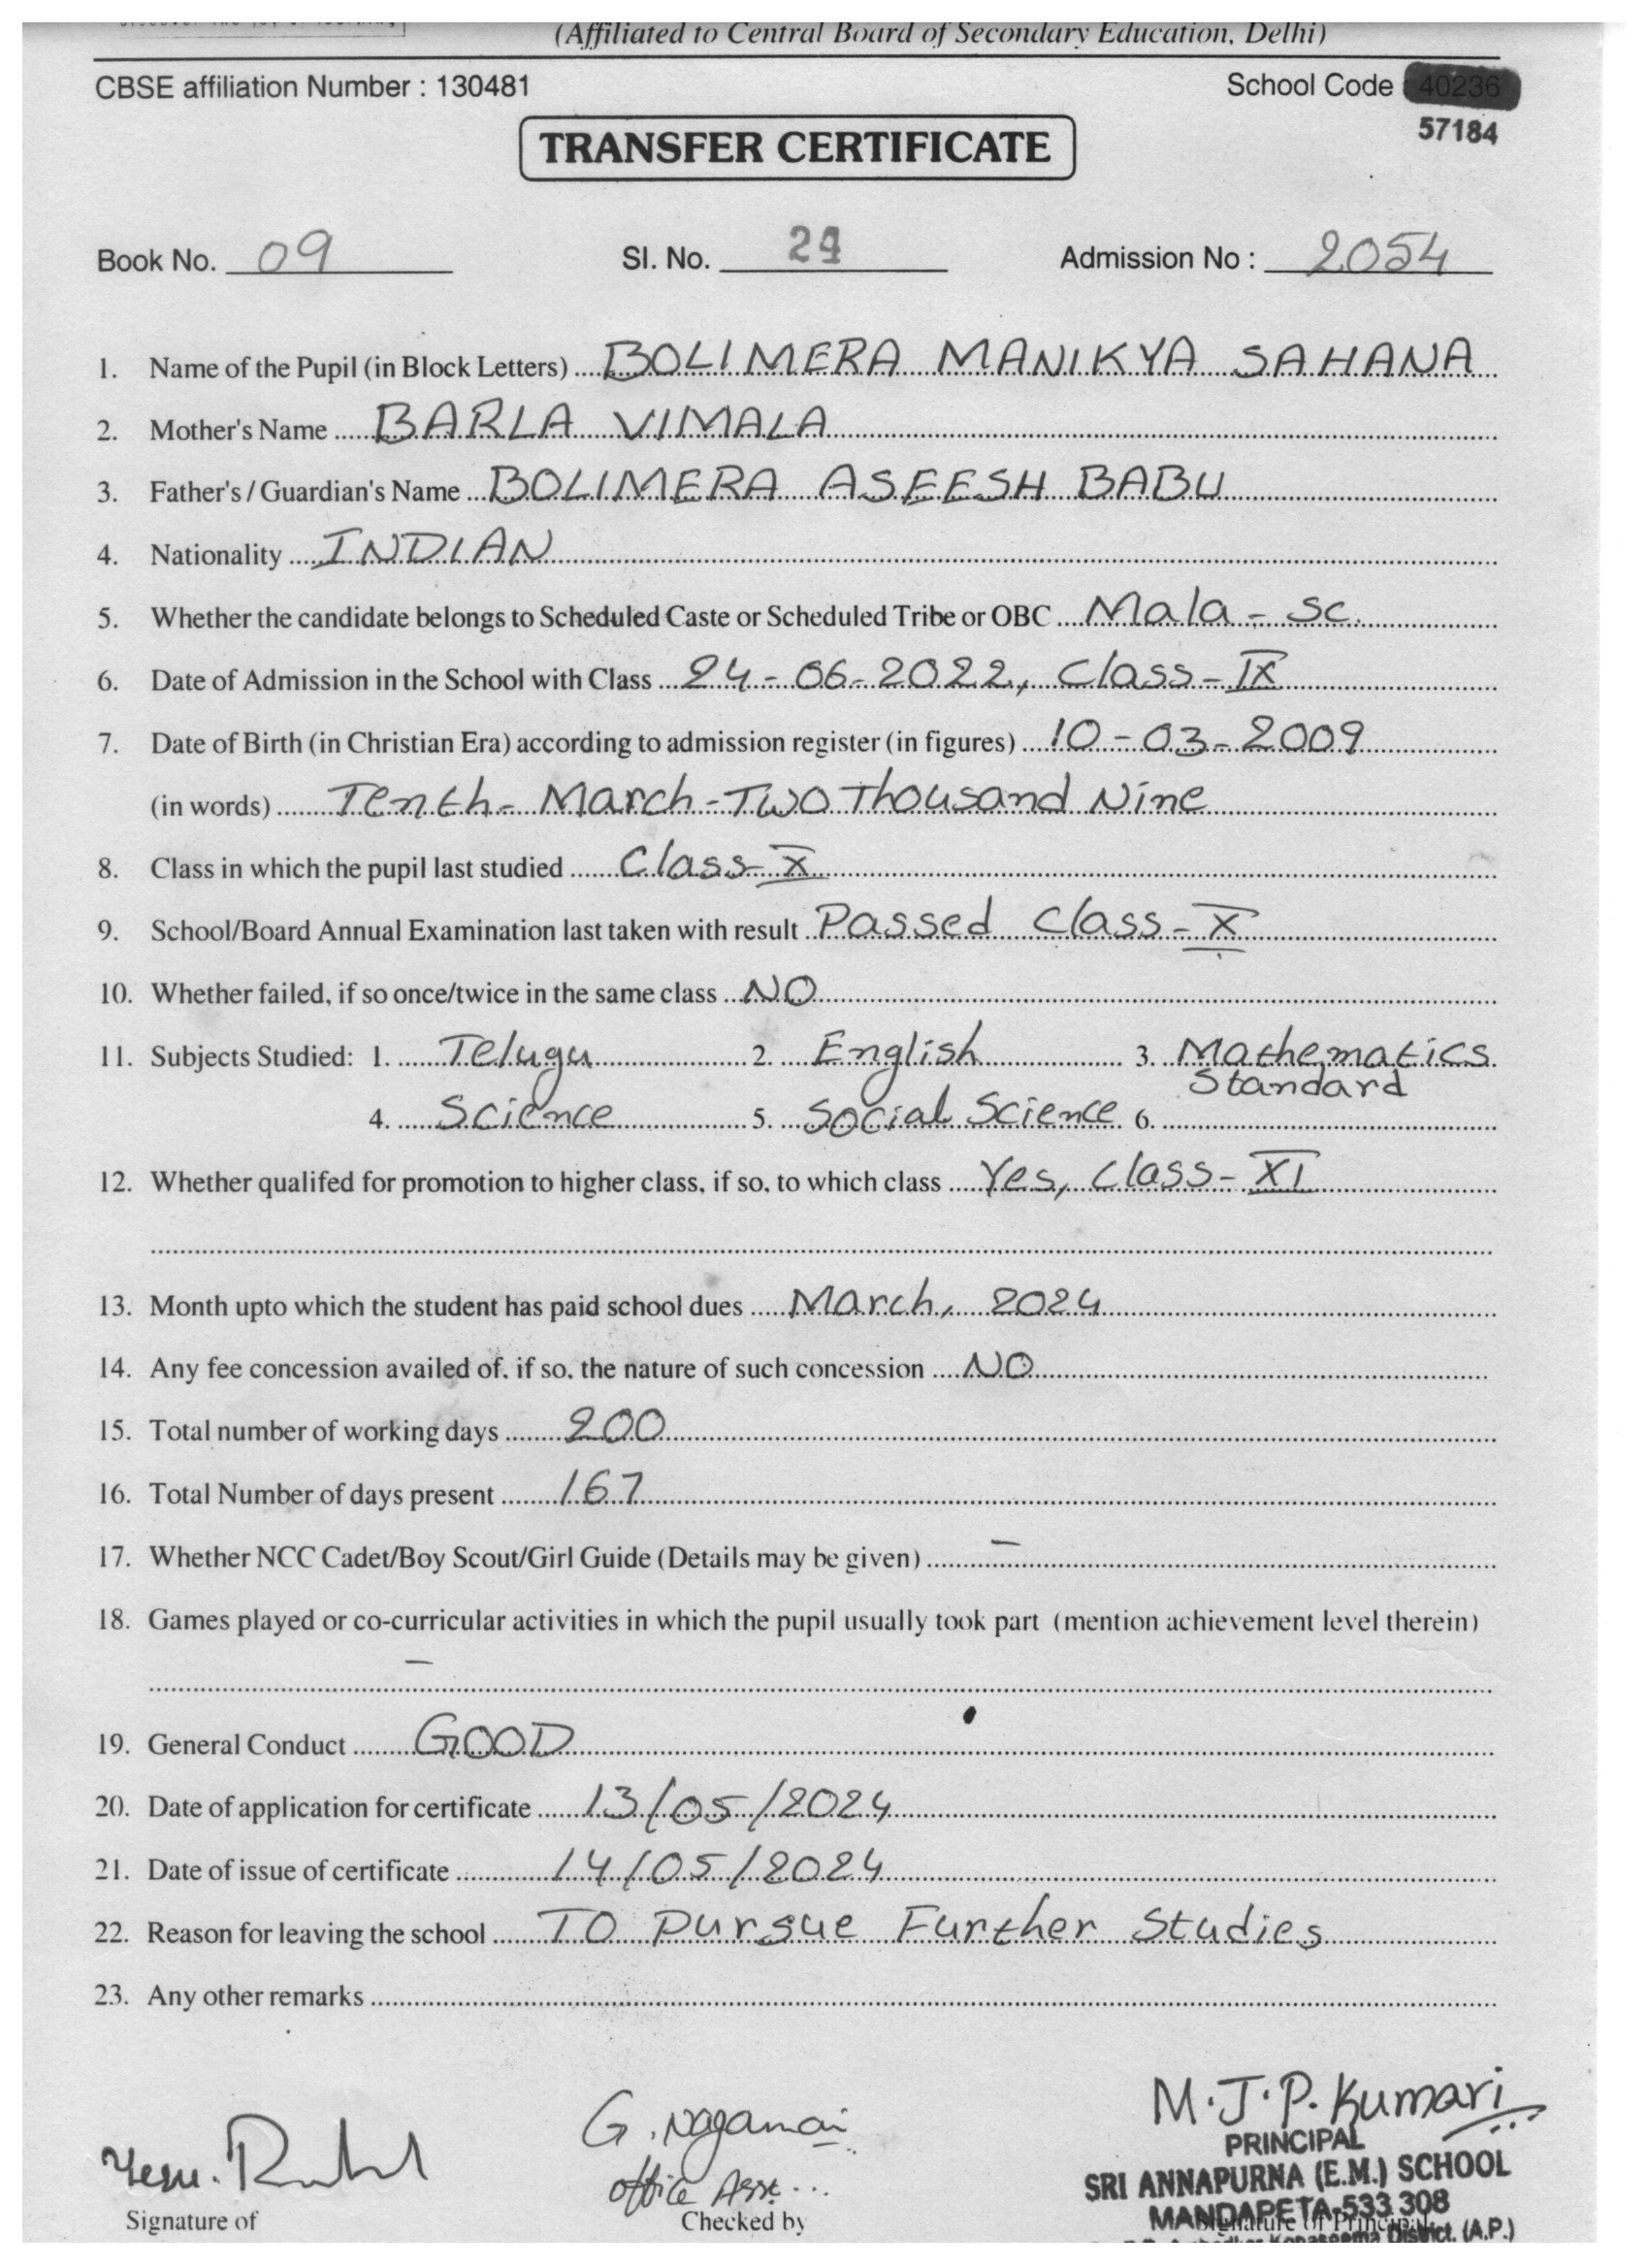 (Affiliated to Central Board of Secondary Education, Delhi)
CBSE affiliation Number : 130481 School Code 40236
57184
TRANSFER CERTIFICATE
Book No. 09 Sl. No. 24 Admission No : 2054
1. Name of the Pupil (in Block Letters) BOLIMERA MANIKYA SAHANA
2. Mother's Name BARLA VIMALA
3. Father's / Guardian's Name BOLIMERA ASEESH BABU
4. Nationality INDIAN
5. Whether the candidate belongs to Scheduled Caste or Scheduled Tribe or OBC Mala - SC.
6. Date of Admission in the School with Class 24-06-2022, Class-IX
7. Date of Birth (in Christian Era) according to admission register (in figures) 10-03-2009
(in words) Tenth- March-Two Thousand Nine
8. Class in which the pupil last studied Class-X
9. School/Board Annual Examination last taken with result Passed Class-X
10. Whether failed, if so once/twice in the same class NO
11. Subjects Studied: 1. Telugu 2. English 3. Mathematics
Standard
4. Science 5. Social Science 6.
12. Whether qualifed for promotion to higher class, if so, to which class Yes, Class-XI
13. Month upto which the student has paid school dues March, 2024
14. Any fee concession availed of, if so, the nature of such concession NO
15. Total number of working days 200
16. Total Number of days present 167
17. Whether NCC Cadet/Boy Scout/Girl Guide (Details may be given) —
18. Games played or co-curricular activities in which the pupil usually took part (mention achievement level therein)
—
19. General Conduct GOOD
20. Date of application for certificate 13/05/2024
21. Date of issue of certificate 14/05/2024
22. Reason for leaving the school TO Pursue Further Studies
23. Any other remarks
M.J.P. Kumari
PRINCIPAL
SRI ANNAPURNA (E.M.) SCHOOL
MANDAPETA-533 308
Office Asst...
Signature of Checked by Signature of Principal
Konaseema District. (A.P.)